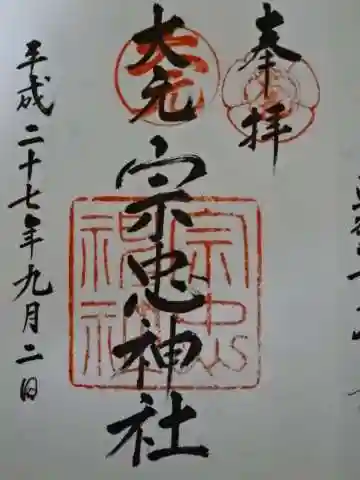 奉拝
大元
宗忠神社
平成二十七年九月二日
宗忠
神社